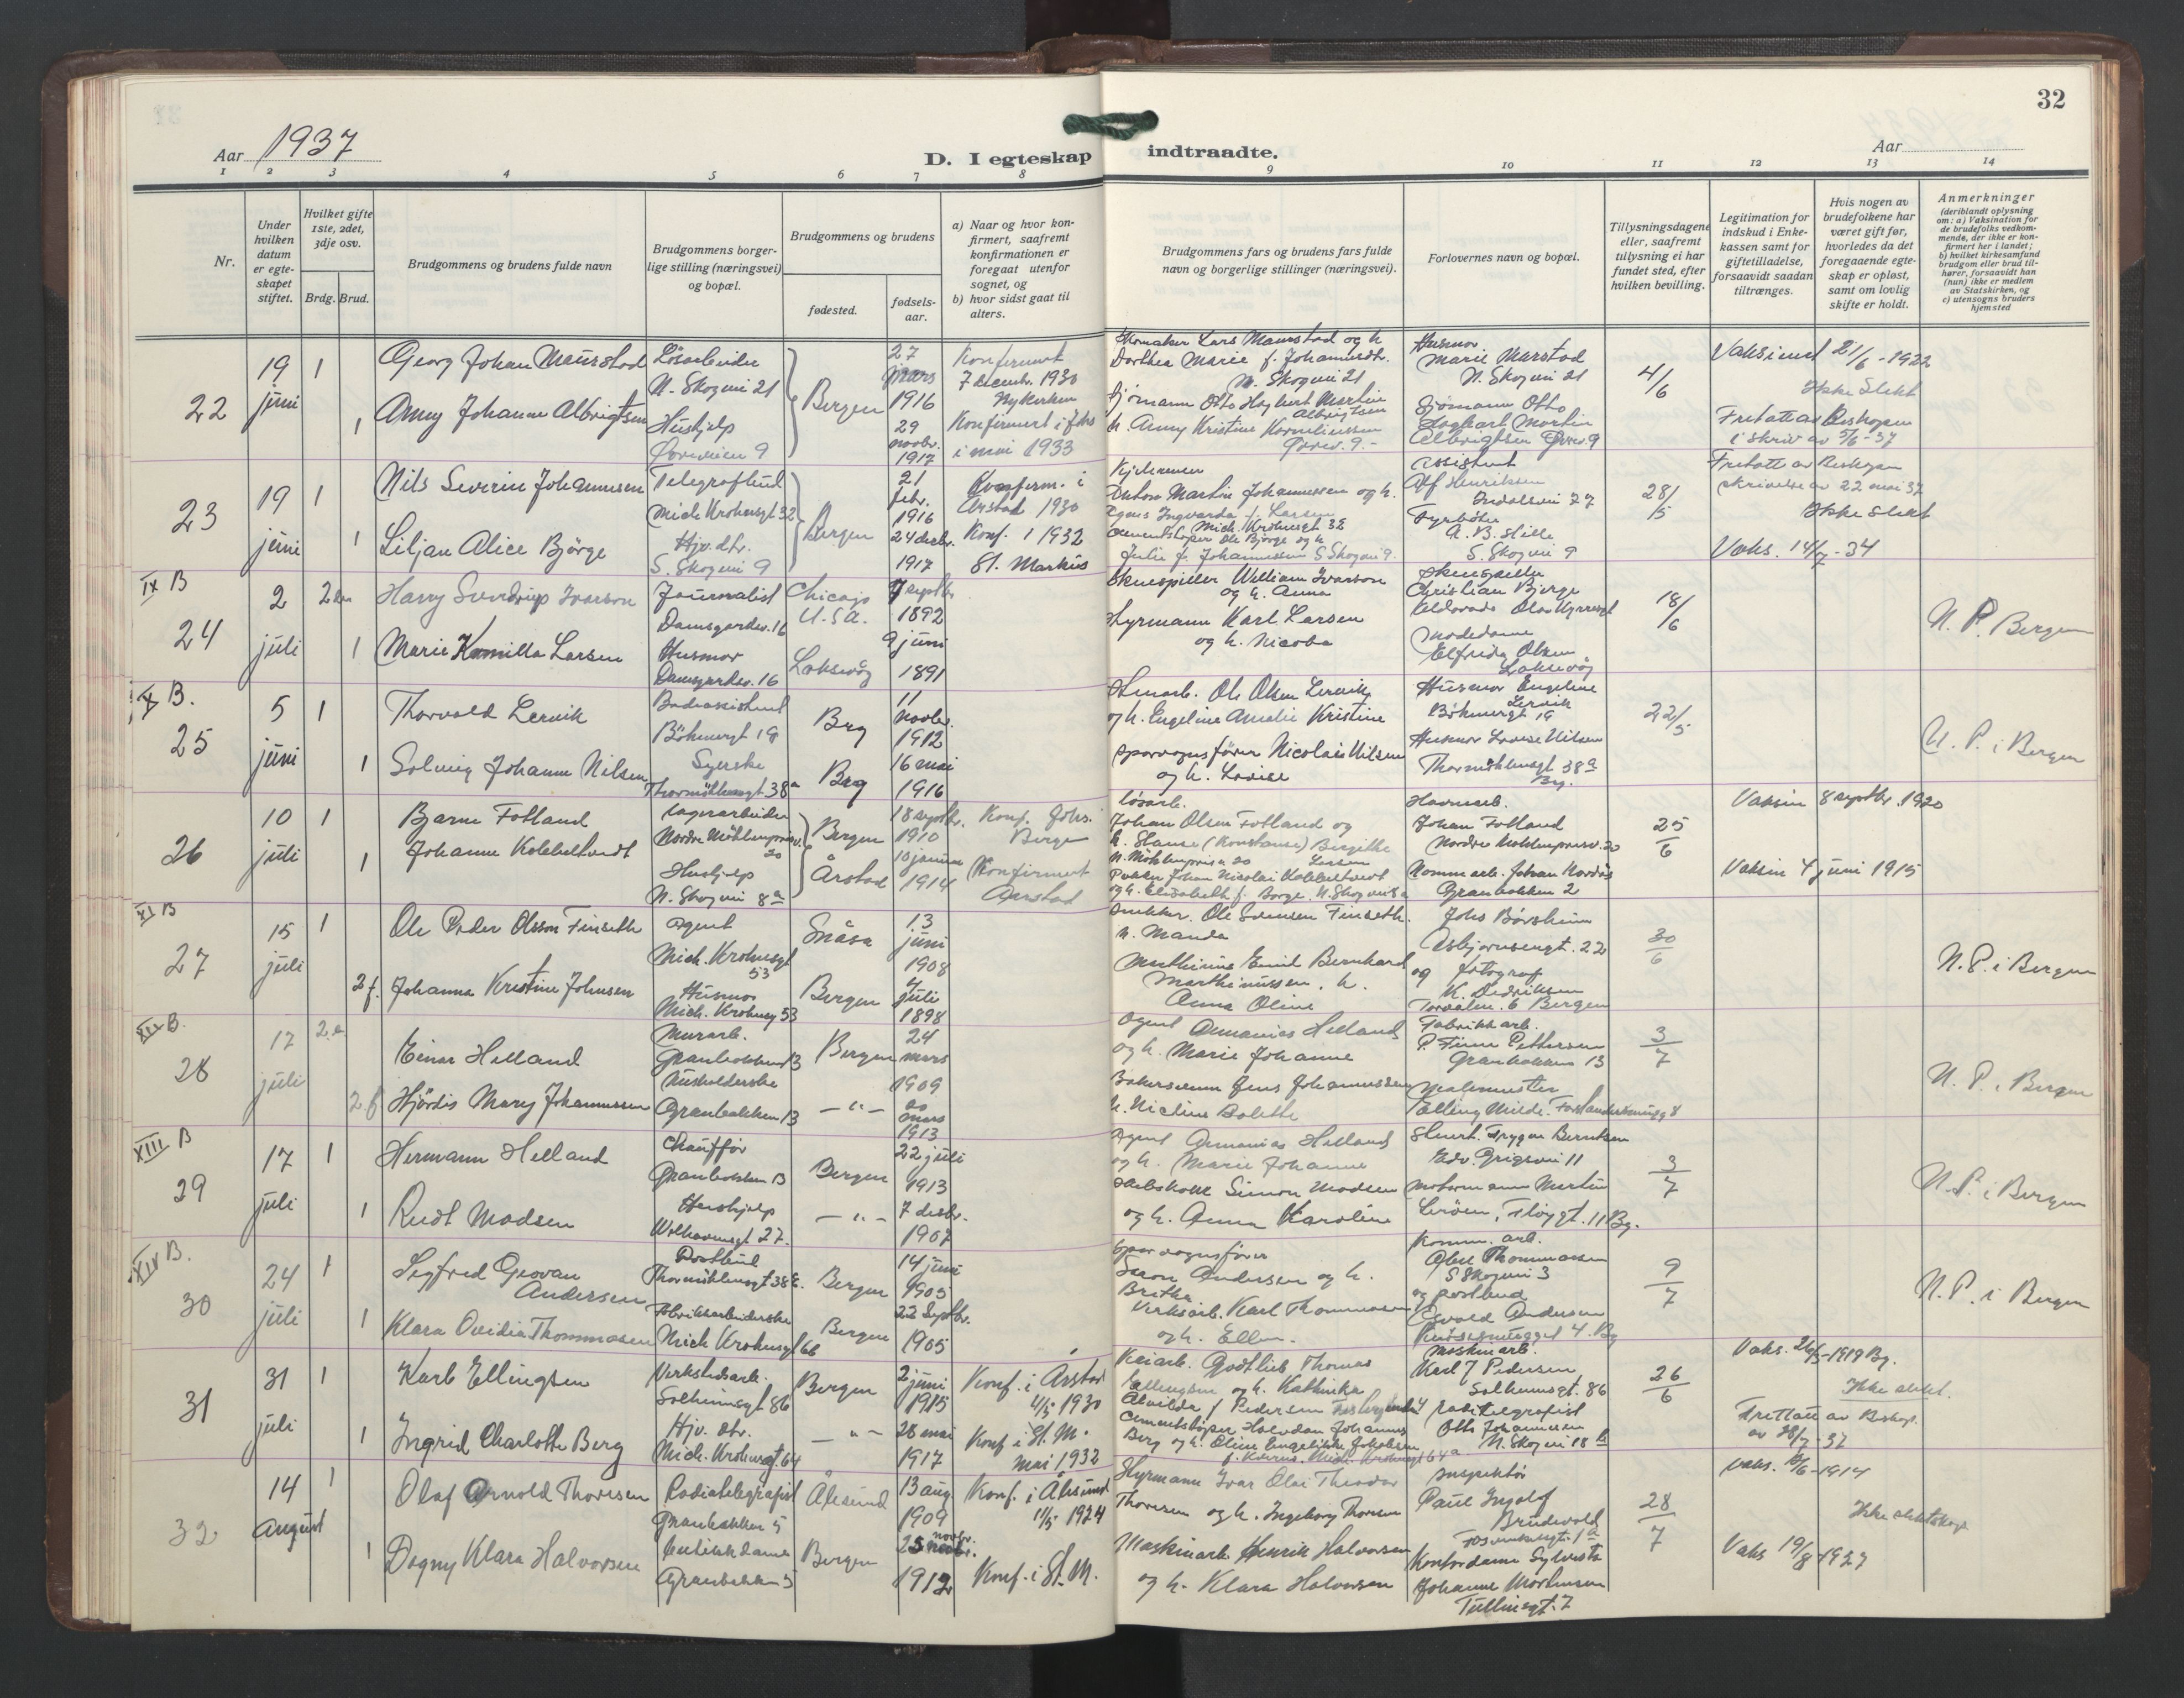 32
Aar 1937
D. I egteskap indtraadte.
Aar
1 2 3 4 5 6 7 8 9 10 11 12 13 14
Nr.
Under hvilken datum er egte-skapet stiftet.
Hvilket gifte 1ste, 2det, 3dje osv.
Brdg. Brud.
Brudgommens og brudens fulde navn
Brudgommens borger-lige stilling (næringsvei) og bopæl.
Brudgommens og brudens
fødested.
fødsels-aar.
a) Naar og hvor kon-firmert, saafremt konfirmationen er foregaat utenfor sognet, og
b) hvor sidst gaat til alters.
Brudgommens fars og brudens fars fulde navn og borgerlige stillinger (næringsvei).
Forlovernes navn og bopæl.
Tillysningsdagene eller, saafremt tillysning ei har fundet sted, efter hvilken bevilling.
Legitimation for indskud i Enke-kassen samt for giftetilladelse, forsaavidt saadan tiltrænges.
Hvis nogen av brudefolkene har været gift før, hvorledes da det foregaaende egte-skap er opløst, samt om lovlig skifte er holdt.
Anmerkninger
(deriblandt oplysning om: a) Vaksination for de brudefolks vedkom-mende, der ikke er kon-firmert her i landet; b) hvilket kirkesamfund brudgom eller brud til-hører, forsaavidt han (hun) ikke er medlem av Statskirken, og c) utensogns bruders hjemsted
22
19 juni
1
Georg Johan Maurstad
Løsarbeider
N. Skogvei 21
Bergen
27 mars 1916
Konfirmert
7 decemb. 1930
Nykirken
Skomaker Lars Maurstad og h.
Dorthea Marie f. Johannesdtr.
N. Skogvei 21
Husmor
Marie Maurstad
N. Skogvei 21
4/6
Vaksinert 21/6-1922
Ikke slekt
1
Anny Johanne Albrigtsen
Hushjelp
Øvreveien 9
29 novbr. 1917
Konfirmert i Johs
i mai 1933
Sjømann Otto Hagbart Martin Albrigtsen
h. Anny Kristine Korneliussen
Øvrev. 9.
Sjømann Otto
Hagbart Martin
Albrigtsen Øvrev. 9
Fritatt av Biskopen
i skriv av 5/6-37
23
19 juni
1
Nils Severin Johannesen
Telegrafbud
Mich. Krohnsgt 32
Bergen
21 febr. 1916
Konfirm. i
Årstad 1930
Anton Martin Johannessen og h.
Agnes Ingvarda f. Larsen
Mich. Krohnsgt 32
Assistent
Alf Henriksen
Indalsvei 77
28/5
Fritatt av Biskopen
skrivelse av 22 mai 37
Ikke slekt
1
Liljan Alice Björge
Hjv. dtr.
S. Skogvei 9
24 desbr. 1917
Konf. i 1932
St. Markus
Cementstøper Ole Björge og h.
Julie f. Johannessen S. Skogvei 9.
Fyrbøter
A. B. Stille
S. Skogvei 9
Vaks. 14/7-34
IX B
24
2 juli
Harry Sverdrup Ivarson
Journalist
Damsgardsv. 16
Chicago
U.S.A.
7 septbr. 1892
Skuespiller William Ivarson
og h. Anna
Skuespiller
Christian Bjerge
18/6
N. P. Bergen
1
Marie Kamilla Larsen
Husmor
Damsgardsv. 16
Laksevåg
9 juni 1891
Fyrmann Karl Larsen
og h. Nicoba
Modedame
Elfrida Olsen
Laksevåg
X B.
25
5 juni
1
Thorvald Lervik
Badeassistent
Böhmergt 19
Brg
11 novbr. 1912
Ole Olsen Lervik
og h. Engeline Amalie Kristine
Husmor Engeline Lervik
Böhmergt 19
22/5
N. P. i Bergen
1
Solveig Johanne Nilsen
Syerske
Thormöhlensgt 38a
Brg
16 mai 1916
Sporvognsförer Nicolai Nilsen
og h. Lovise
Husmor Lovise Nilsen
Thormöhlensgt 38a
Brg.
26
10 juli
1
Bjarne Fotland
Lagerarbeider
Nordre Möhlenprisv. 20
Bergen
18 septbr. 1910
Konf. Johs.
Bergen
Løsarb.
Johan Olsen Fotland og
h. Stanse (Konstanse) Birgitte Larsen
N. Möhlenprisv 20
Havnearb.
Johan Fotland
Nordre Möhlenprisv. 20
25/6
Vaksin 8 septbr. 1920
1
Johanne Kobbeltvedt
Hushjelp
N. Skogvei 8a
Årstad
10 januar 1914
Konfirmert
Aarstad
Johan Nicolai Kobbeltvedt
og h. Elisabeth f. Borge. N. Skogvei 8a
Komm arb. Johan Nordås
Granbakken 2
Vaksin 4 juni 1915
XI B
27
15 juli
1
Ole Peder Olsson Finseth
Agent
Mich. Krohnsgt 53
Snåsa
13 juni 1908
Snekker. Ole Svensen Finseth.
h. Manda
Johs Børsheim
Asbjørnsensgt. 22
30/6
N. P. i Bergen
2 f.
Johanna Kristine Johnsen
Husmor
Mich. Krohnsg 53
Bergen
4 juli 1898
Mathinius Emil Bernhard
Marthinussen, h.
Anna Oline
og fotograf
K. Didriksen
Torvalm. 6 Bergen
XII B.
28
17 juli
Einar Helland
Murarb.
Granbakken 13
Bergen
24 mars 1909
Agent Annanias Helland
og h. Marie Johanne
Fabrikkarb.
P. Finn Pettersen
Granbakken 13
3/7
N. P. i Bergen
2 f
Hjördis Mary Johannessen
Husholderske
Granbakken 13
- " -
mars 1913
Bakersvenn Jens Johannessen
h. Nicline Bolette
Malermester
Forstandersmugg 8
XIII B
29
17 juli
1
Hermann Helland
Chauffør
Granbakken 13
Bergen
22 juli 1913
Agent Annanias Helland
og h. Marie Johanne
Stuert. Trygve Berntsen
Edv. Griegsvei 11
3/7
N. P. i Bergen
1
Rudt Madsen
Hushjelp
Welhavensgt 27.
- " -
7 desbr. 1907
Simon Madsen
og h. Anna Karoline
Motormann Martin
Lerøen, Fløygt. 11 Bg.
XIV B.
30
24 juli
1
Sigfred Geovan
Andersen
Postbud
Thormöhlensgt 38
Bergen
14 juni 1905
Sporvognsfører
Andersen og h.
Britha
Komm. arb.
Thommassen
S Skogvei 3
9/7
N. P. i Bergen
1
Klara Ovidia Thommasen
Fabrikkarbeiderske
Mich Krohnsgt 66
Bergen
22 Septbr. 1905
Verksarb. Karl Thommasen
og h. Ellen.
og postbud
Osvald Andersen
31
31 juli
1
Karl Ellingsen
Verkstedsarb.
Solheimsgt 86
Bergen
2 juni 1915
Konf. i Årstad
4/5 1930
Keiarb. Godtlieb Thomas
Ellingsen og h. Kathinka
Alvilda f Pedersen
Maskinarb.
Karl J Pedersen
Solheimsgt. 86
26/6
Vaks. 1919 Bg.
Ikke slekt.
1
Ingrid Charlotte Berg
Hjv. dtr.
Mich. Krohnsgt. 64
- " -
28 mai 1917
Konf i St. M.
mai 1932
Cementstöper Halvdan Johannes
Berg og h. Oline Engelikke Jakobsen
Mich. Krohnsgt 64a
radiotelegrafist
Otto Johannessen
N. Skogvei 18 b
Frittatt av Biskop.
av 28/7-37
32
14 august
1
Olaf Arnold Thoresen
Radiotelegrafist
Granbakken 5
Ålesund
13 aug 1909
Konf. i Ålesund
11/5 1924
Styrmann Ivar Olai Theodor
Thoresen og h. Ingeborg Thoresen
inspektör
Paul Ingolf
Brudevold
28/7
vaks. 1914
Ikke slektskap
1
Dagny Klara Halvorsen
Butikkdame
Granbakken 5
Bergen
25 novbr. 1912
Konf. i St. M.
Maskinarb Henrik Halvorsen
og h. Klara Halvorsen
Kontordame Sylvista
Johanne Mortensen
Tullinsgt. 7
Vaks 19/8 1927